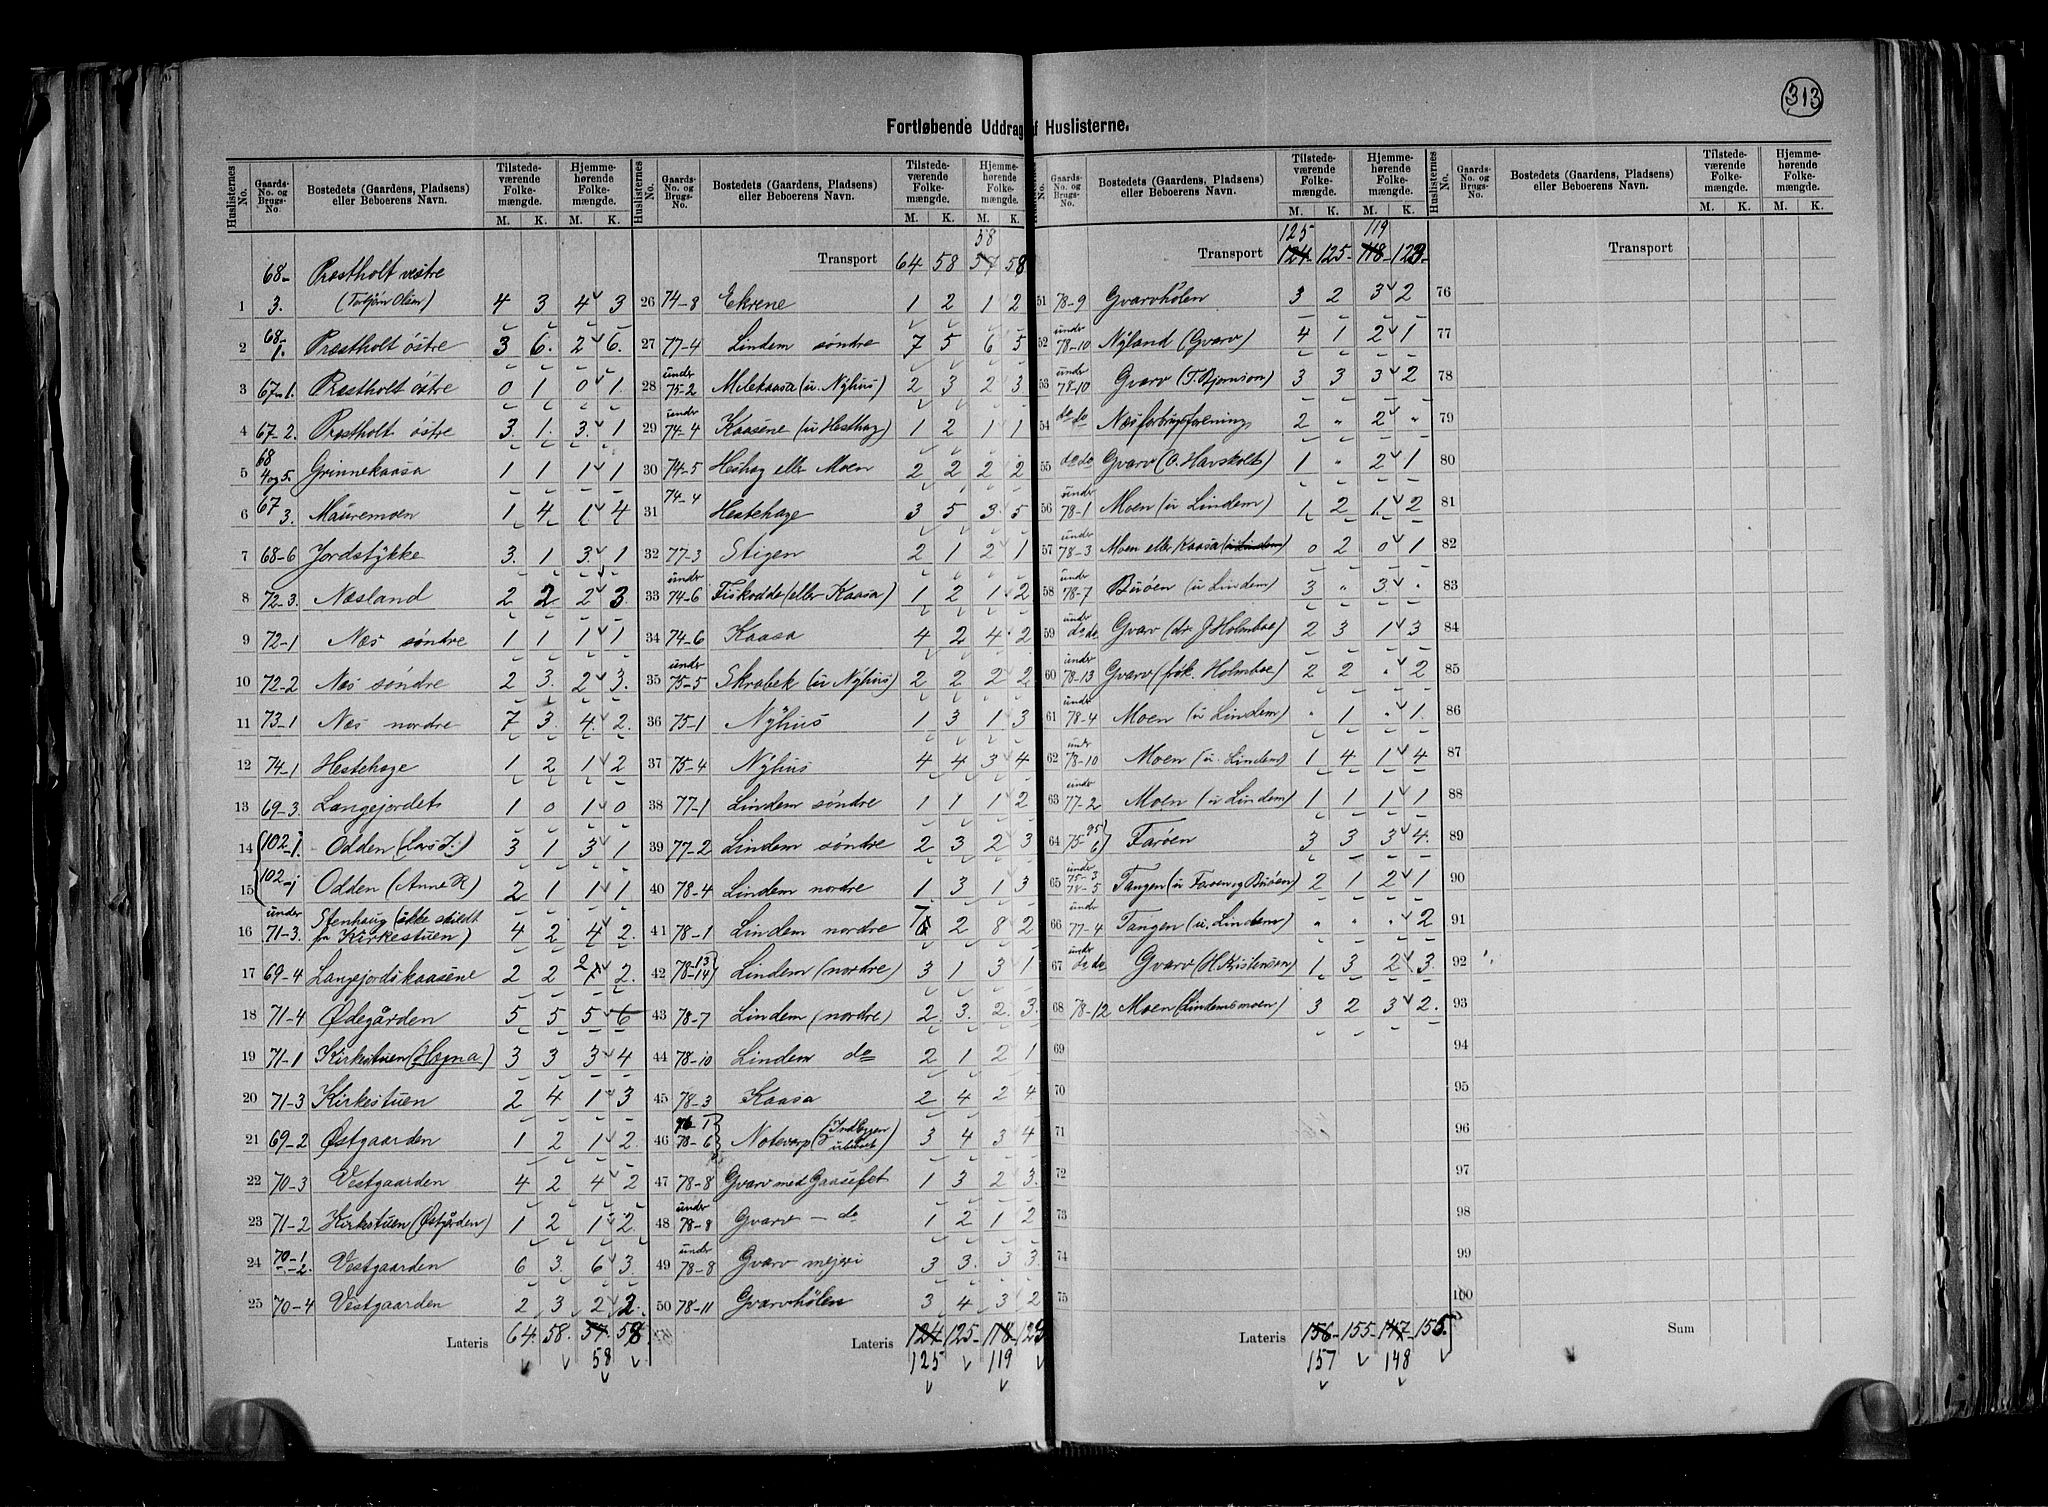 313
Fortløbende Uddrag af Huslisterne.
Huslisternes No. Gaards-No. og Brugs-No. Bostedets (Gaardens, Pladsens) eller Beboerens Navn. Tilstedeværende Folkemængde. M. K. Hjemmehørende Folkemængde. M. K.
1 68-3. Præstholt vestre (Torbjørn Olsen) 4 3 4 3
2 68-1. Præstholt östre 3 6. 2 6.
3 67-1. Præstholt östre 0 1 0 1.
4 67-2. Præstholt östre 3. 1. 3. 1
5 68 4og5. Grinnekaasa 1 1 1 1
6 67 3. Mauremoen 1 4 1 4
7 68-6 Jordstykke 3. 1 3. 1
8 72-3. Næsland 2 2 2 3
9 72-1 Næs söndre 1 1 1 1
10 72-2 Næs söndre 2 3. 2 3.
11 73-1 Næs nordre 7 3 4. 2.
12 74-1 Hestehage 1 2 1 2
13 69-3. Langejordet 1 0 1 0
14 102-1. Odden (Lars T.) 3 1 3 1
15 102-1 Odden (Anne R) 2 1 1 1
16 under 71-3. Stenhaug (ikke skildt fra Kirkestuen) 4 2 4 2.
17 69-4 Langejordskaasene 2 2 2 2.
18 71-4 Ødegården 5 5 5 6
19 71-1 Kirkestuen (Hogna) 3 3 3 4
20 71-3 Kirkestuen 2 4 1 3
21 69-2 Østgaarden 1 2 1 2.
22 70-3 Vestgaarden 4 2 4 2
23 71-2 Kirkstuen (Østgården) 1 2 1 2.
24 70-1 -2. Vestgaarden 6 3. 6 3.
25 70-4 Vestgaarden 2 3 2 2.
Lateris 64. 58. 57. 58.
58
Huslisternes No. Gaards-No. og Brugs-No. Bostedets (Gaardens, Pladsens) eller Beboerens Navn. Tilstedeværende Folkemængde. M. K. Hjemmehørende Folkemængde. M. K.
58
Transport 64 58 57 58
26 74-8 Ekrene 1 2 1 2
27 77-4 Lindem söndre 7 5 6 5
28 under 75-2 Milekaasa (u. Nyhus) 2 3 2 3
29 under 74-4 Kaasene (u Hesthag) 1 2 1 1
30 74-5 Heshag eller Moen 2 2 2 2
31 74-4 Hestehage 3 5 3 5
32 77-3 Stigen 2 1 2 1
33 under 74-6 Fiskodde (eller Kaasa) 1 2 1 2
34 74-6 Kaasa 4 2 4 2
35 under 75-5 Skrabek (u Nyhus) 2 2 2 2
36 75-1 Nyhus 1 3 1 3
37 75-4 Nyhus 4 4 3 4
38 77-1 Lindem söndre 1 1 1 2
39 77-2 Lindem söndre 2 3 2 3
40 78-4 Lindem nordre 1 3 1 3
41 78-1 Lindem nordre 7 2 8 2
42 78-13 14 Lindem (nordre) 3 1 3 1
43 78-7 Lindem (nordre) 2 3. 2. 3.
44 78-10 Lindem do 2 1 2 1
45 78-3 Kaasa 2 4 2 4
46 78-6 Notevarp 3 4 3 4
47 78-8 Gvarv med Gaasefet 1 3 2 3.
48 under 78-8 Gvarv - do 1 2 1 2
49 under 78-8 Gvarv mejeri 3 3. 3 3.
50 78-11 Gvarvhölen 3 4 3 2
Lateris 124- 125- 118- 123
125 119
Huslisternes No. Gaards-No. og Brugs-No. Bostedets (Gaardens, Pladsens) eller Beboerens Navn. Tilstedeværende Folkemængde. M. K. Hjemmehørende Folkemængde. M. K.
125 119
Transport 124- 125- 118- 123-
51 78-9 Gvarvhölen 3 2 3 2
52 under 78-10 Nyland (Gvarv) 4 1 2 1
53 under 78-10 Gvarv (T. Bjørnson) 3 3 3 2
54 do do Næs forbrugsforening 2 " 2 "
55 do do Gvarv (O. Havskolt) 1 " 2 1
56 under 78-1 Moen (u Lindem) 1 2 1 2
57 under 78-3 Moen eller Kaasa (u Lindem) 0 2 0 1
58 under 78-7 Buöen (u Lindem) 3 " 3 "
59 under do do Gvarv (dr. J Holmboe) 2 3 1 3
60 under 78-13 Gvarv (frök. Holmboe) 2 2 " 2
61 under 78-4 Moen (u Lindem) " 1 " 1.
62 und 78-10 Moen (u. Lindem) 1 4 1 4
63 under 77-2 Moen (u Lindem) 1 1 1 1
64 75-6 Faröen 3 3 3 4.
65 under 75-3 78-5 Tangen (u Faroen og Buöen) 2 1 2 1
66 under 77-4 Tangen (u. Lindem) " " " 2
67 under do do Gvarv (H Kristenson) 1 3 2 3.
68 78-12 Moen (Lindemsmoen) 3 2 3 2.
69
70
71
72
73
74
75
Lateris 156- 155- 147- 155.
157 148
Huslisternes No. Gaards-No. og Brugs-No. Bostedets (Gaardens, Pladsens) eller Beboerens Navn. Tilstedeværende Folkemængde. M. K. Hjemmehørende Folkemængde. M. K.
Transport
76
77
78
79
80
81
82
83
84
85
86
87
88
89
90
91
92
93
94
95
96
97
98
99
100
Sum